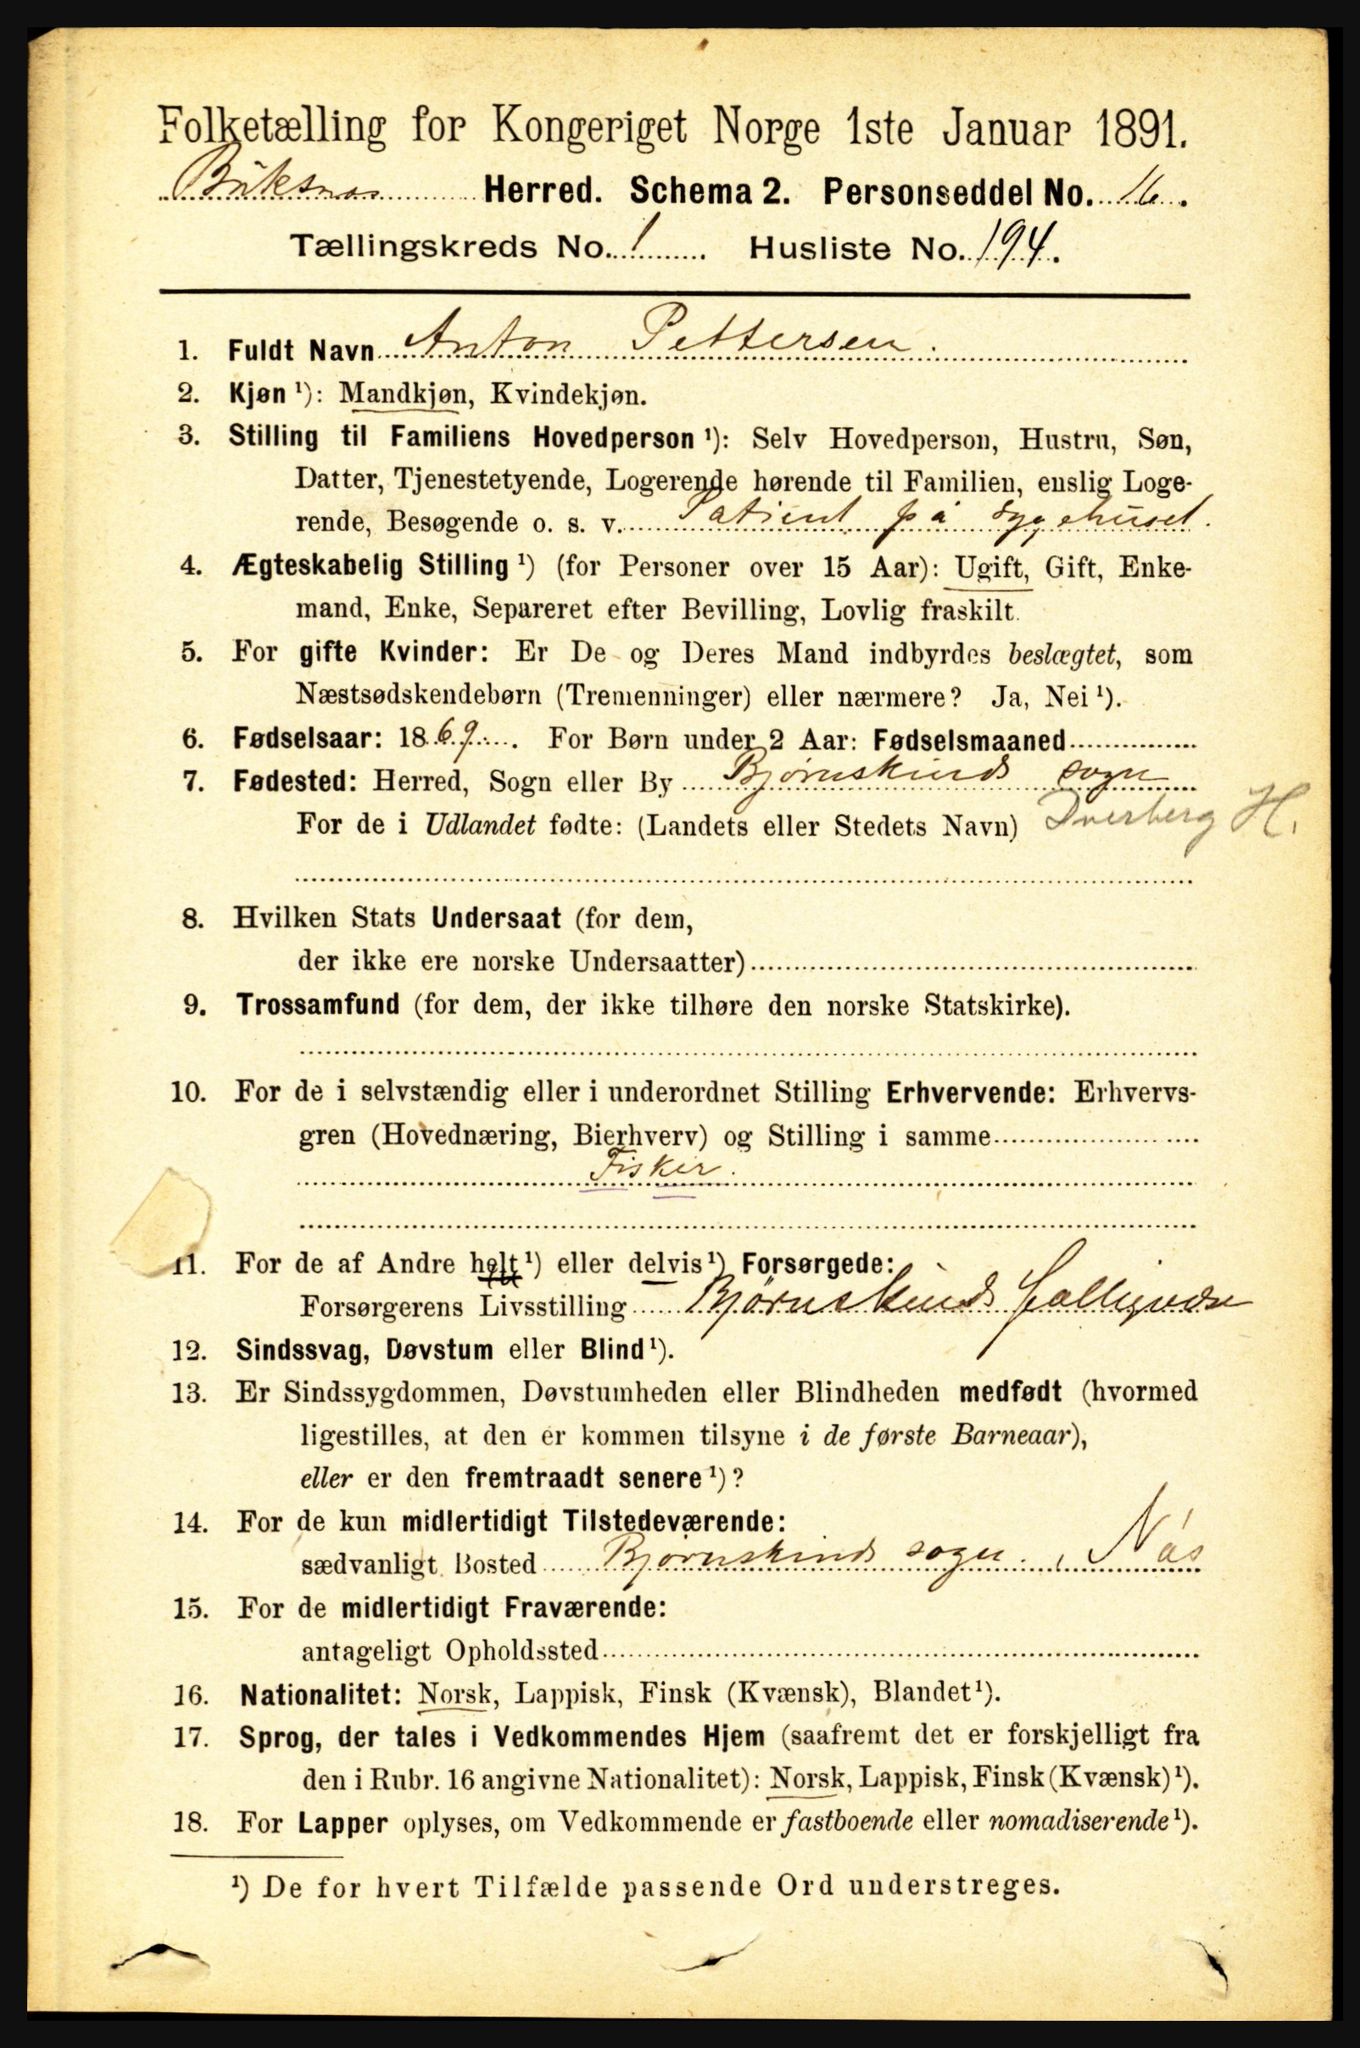 Folketælling for Kongeriget Norge 1ste Januar 1891.
Buksnæs Herred. Schema 2. Personseddel No. 16.
Tællingskreds No. 1 Husliste No. 194.
1. Fuldt Navn Anton Pettersen.
2. Kjøn ¹): Mandkjøn, Kvindekjøn.
3. Stilling til Familiens Hovedperson ¹): Selv Hovedperson, Hustru, Søn,
Datter, Tjenestetyende, Logerende hørende til Familien, enslig Loge-
rende, Besøgende o. s. v. Patient på sygehuset.
4. Ægteskabelig Stilling ¹) (for Personer over 15 Aar): Ugift, Gift, Enke-
mand, Enke, Separeret efter Bevilling, Lovlig fraskilt.
5. For gifte Kvinder: Er De og Deres Mand indbyrdes beslægtet, som
Næstsødskendebørn (Tremenninger) eller nærmere? Ja, Nei ¹).
6. Fødselsaar: 1869. For Børn under 2 Aar: Fødselsmaaned
7. Fødested: Herred, Sogn eller By Bjørnskinds sogn
For de i Udlandet fødte: (Landets eller Stedets Navn) Dverberg H.
8. Hvilken Stats Undersaat (for dem,
der ikke ere norske Undersaatter)
9. Trossamfund (for dem, der ikke tilhøre den norske Statskirke).
10. For de i selvstændig eller i underordnet Stilling Erhvervende: Erhvervs-
gren (Hovednæring, Bierhverv) og Stilling i samme
Fisker.
11. For de af Andre helt ¹) eller delvis ¹) Forsørgede:
Forsørgerens Livsstilling Bjørnskinds
12. Sindssvag, Døvstum eller Blind ¹).
13. Er Sindssygdommen, Døvstumheden eller Blindheden medfødt (hvormed
ligestilles, at den er kommen tilsyne i de første Barneaar),
eller er den fremtraadt senere ¹)?
14. For de kun midlertidigt Tilstedeværende:
sædvanligt Bosted Bjørnskinds sogn. , Nås
15. For de midlertidigt Fraværende:
antageligt Opholdssted
16. Nationalitet: Norsk, Lappisk, Finsk (Kvænsk), Blandet ¹).
17. Sprog, der tales i Vedkommendes Hjem (saafremt det er forskjelligt fra
den i Rubr. 16 angivne Nationalitet): Norsk, Lappisk, Finsk (Kvænsk) ¹).
18. For Lapper oplyses, om Vedkommende er fastboende eller nomadiserende ¹).
¹) De for hvert Tilfælde passende Ord understreges.